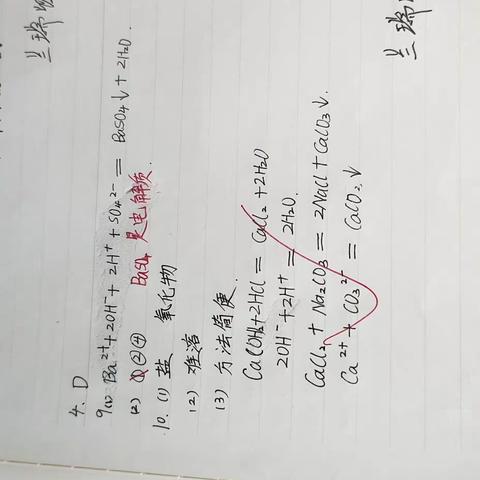 4. D
9(1) Ba²⁺+2OH⁻+2H⁺+SO₄²⁻=BaSO₄↓+2H₂O.
(2) ①②④ BaSO₄ 是电解质.
10. (1) 盐 氧化物
(2) 难溶
(3) 方法简便.
Ca(OH)₂+2HCl=CaCl₂+2H₂O
2OH⁻+2H⁺=2H₂O.
CaCl₂+Na₂CO₃=2NaCl+CaCO₃↓.
Ca²⁺+CO₃²⁻=CaCO₃↓